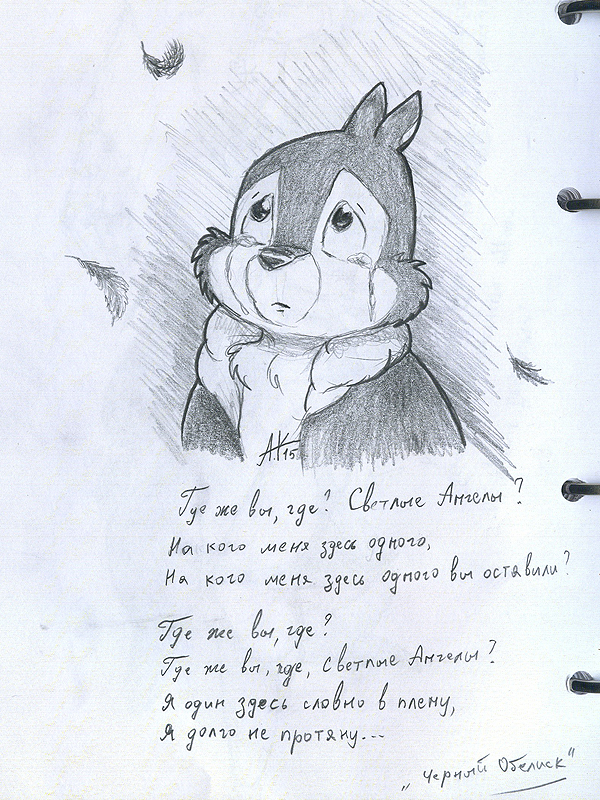 АК15
Где же вы, где? Светлые Ангелы?
На кого меня здесь одного,
На кого меня здесь одного вы оставили?
Где же вы, где?
Где же вы, где, светлые Ангелы?
Я один здесь словно в плену,
Я долго не протяну...
„Черный Обелиск"